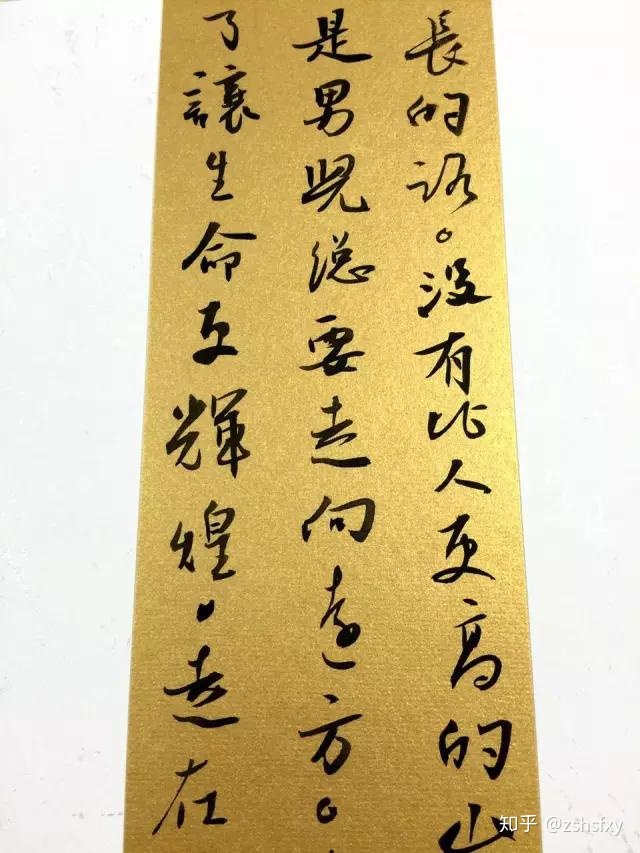 長的路。没有比人更高的山
是男兒總要走向遠方。
了讓生命更輝煌。走在
知乎 @zshsfxy